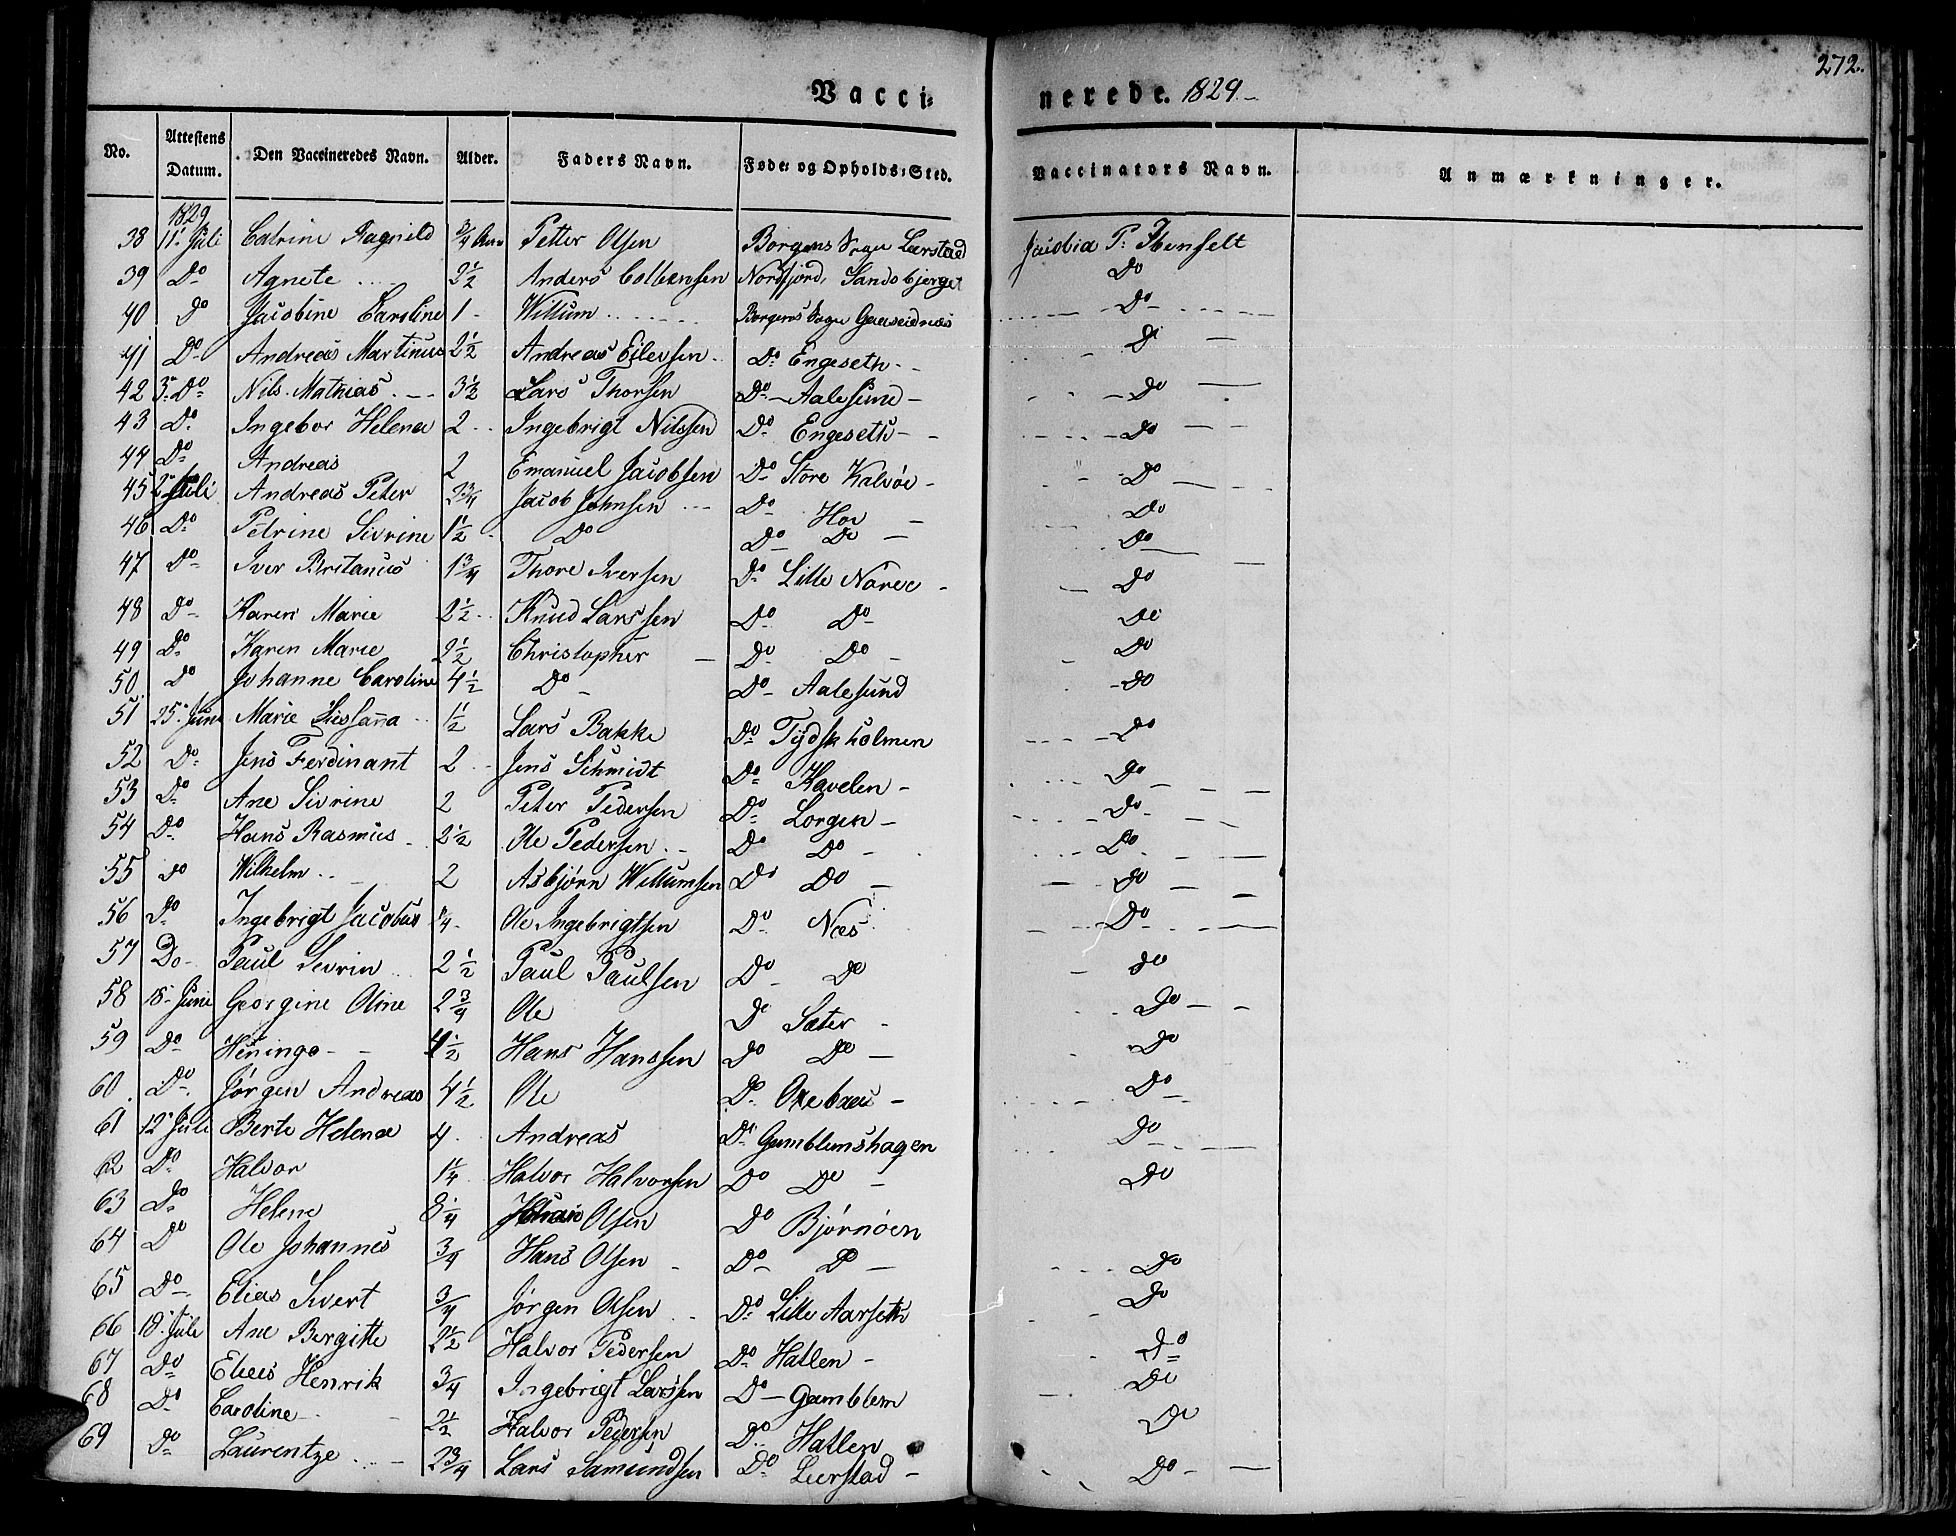 272.
Vacci-nerede. 1829.
No. Attestens Datum. Den Vaccineredes Navn. Alder. Faders Navn. Føde- og Opholds-Sted. Vaccinators Navn. Anmærkninger.
1829
38 11. Juli Catrine Ragnild 3/4 Petter Olsen Borgens Sogn Leerstad Jacobia P:
39 Do Agnete 2 1/2 Anders Nordfjord, Sandsbjerget Do
40 Do Jacobine Caroline 1 Willum Borgens Sogn Do
41 Do Andreas Martinus 2 1/2 Andreas Eilersen Do Engeseth Do
42 3. Do Nils Mathias 3 1/2 Lars Thorsen Do Aalesund Do
43 Do Ingebor Helena 2 Ingebrigt Nilssen Do Engeseth Do
44 Do Andreas 2 Emanuel Jacobsen Do Store Kalvøe Do
45 2. Juli Andreas Peter 2 3/4 Jacob Johnsen Do Hov Do
46 Do Petrine Sivrine 1 1/2 Do Do Do Do
47 Do Iver Britanus 1 3/4 Thore Iversen Do Lille Nörve Do
48 Do Karen Marie 2 1/2 Knud Larssen Do Do Do
49 Do Karen Marie 2 1/2 Christopher Do Do Do
50 Do Johanne Caroline 4 1/2 Do Do Aalesund Do
51 25. Juni Marie Sussanna 1/2 Lars Bakke Do Tydskholmen Do
52 Do Jens Ferdinant 2 Jens Schmidt Do Kavelen Do
53 Do Ane Sivrine 2 Peter Pedersen Do Lorgen Do
54 Do Hans Rasmus 2 1/2 Ole Pedersen Do Do Do
55 Do Wilhelm 2 Asbjørn Willumsen Do Do Do
56 Do Ingebrigt Jacobus Ole Ingebrigtsen Do Næs Do
57 Do Paul Sevrin 2 1/2 Paul Paulsen Do Do Do
58 18. Juni Georgine Oline 2 3/4 Ole Do Sæter Do
59 Do Heninge 4 1/2 Hans Hanssen Do Do Do
60 Do Jørgen Andreas 4 1/2 Ole Do Do
61 12. Juli Berte Helena 4 Andreas Do Gamblemshagen Do
62 Do Halvor 1 1/4 Halvor Halvorsen Do Do Do
63 Do Helene Olsen Do Bjørnøen
64 Do Ole Johannes 3/4 Hans Olsen Do Do Do
65 Do Elias Sivert 3/4 Jørgen Olsen Do Lille Aarseth Do
66 18. Juli Ane Bergitte 2 1/2 Halvor Pedersen Do Hatlen Do
67 Do Elias Henrik 3/4 Ingebrigt Larssen Do Gamblem Do
68 Do Caroline 2 1/2 Halvor Pedersen Do Hatlen Do
69 Do Laurentze 2 3/4 Lars Samundsen Do Leerstad Do